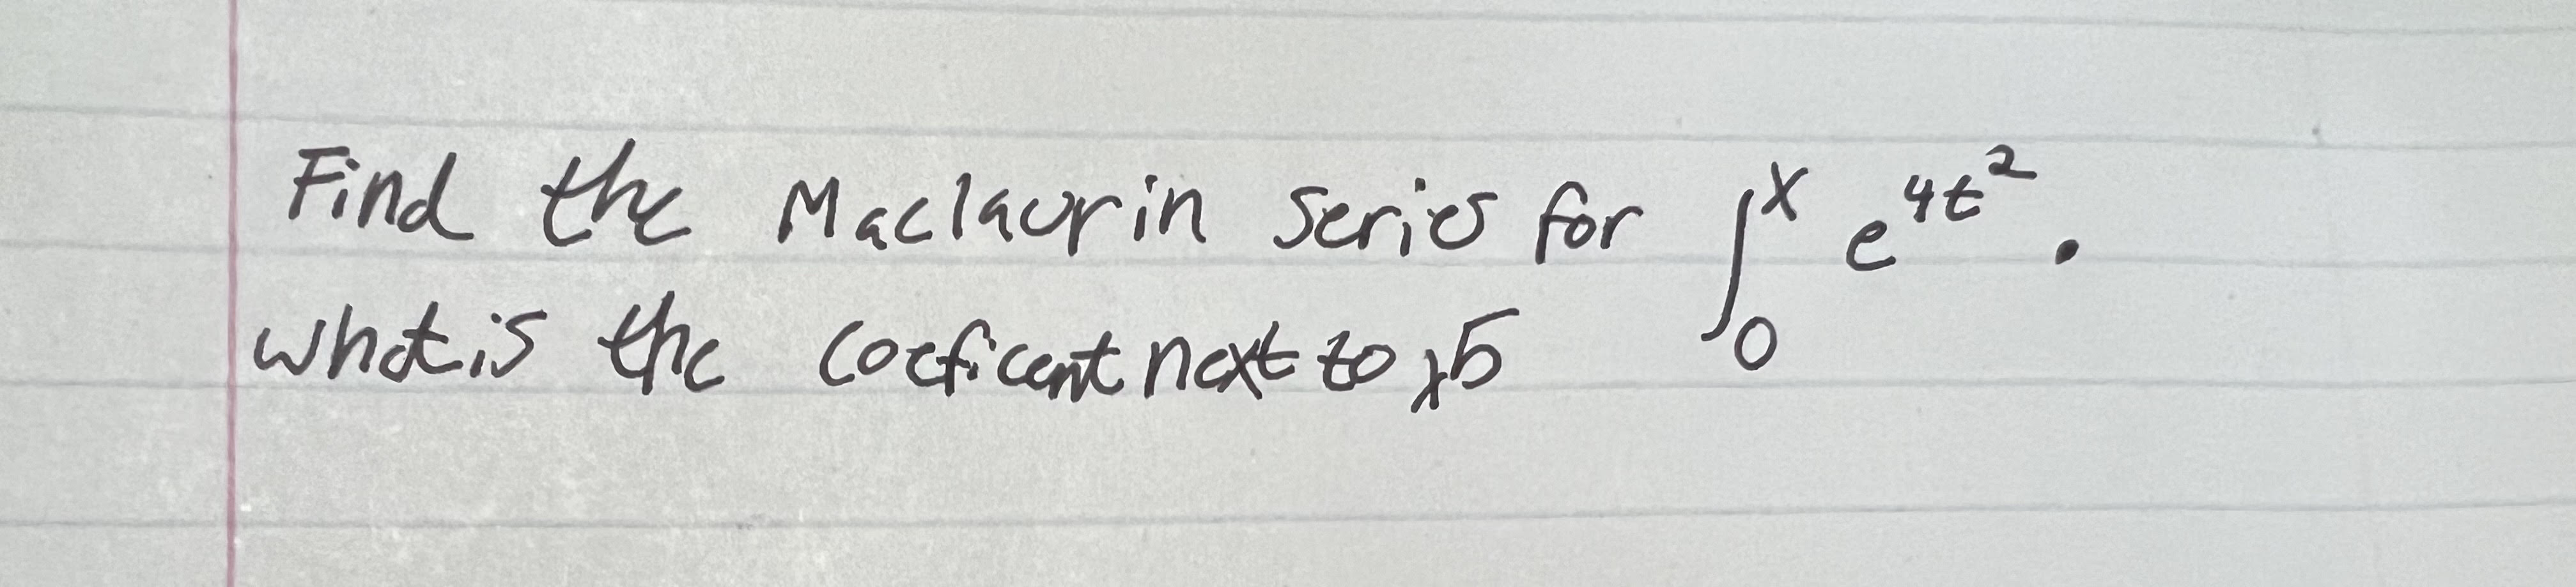 Find the Maclaurin series for ∫₀ˣ e^{4t²}.
what is the coeficent next to x5